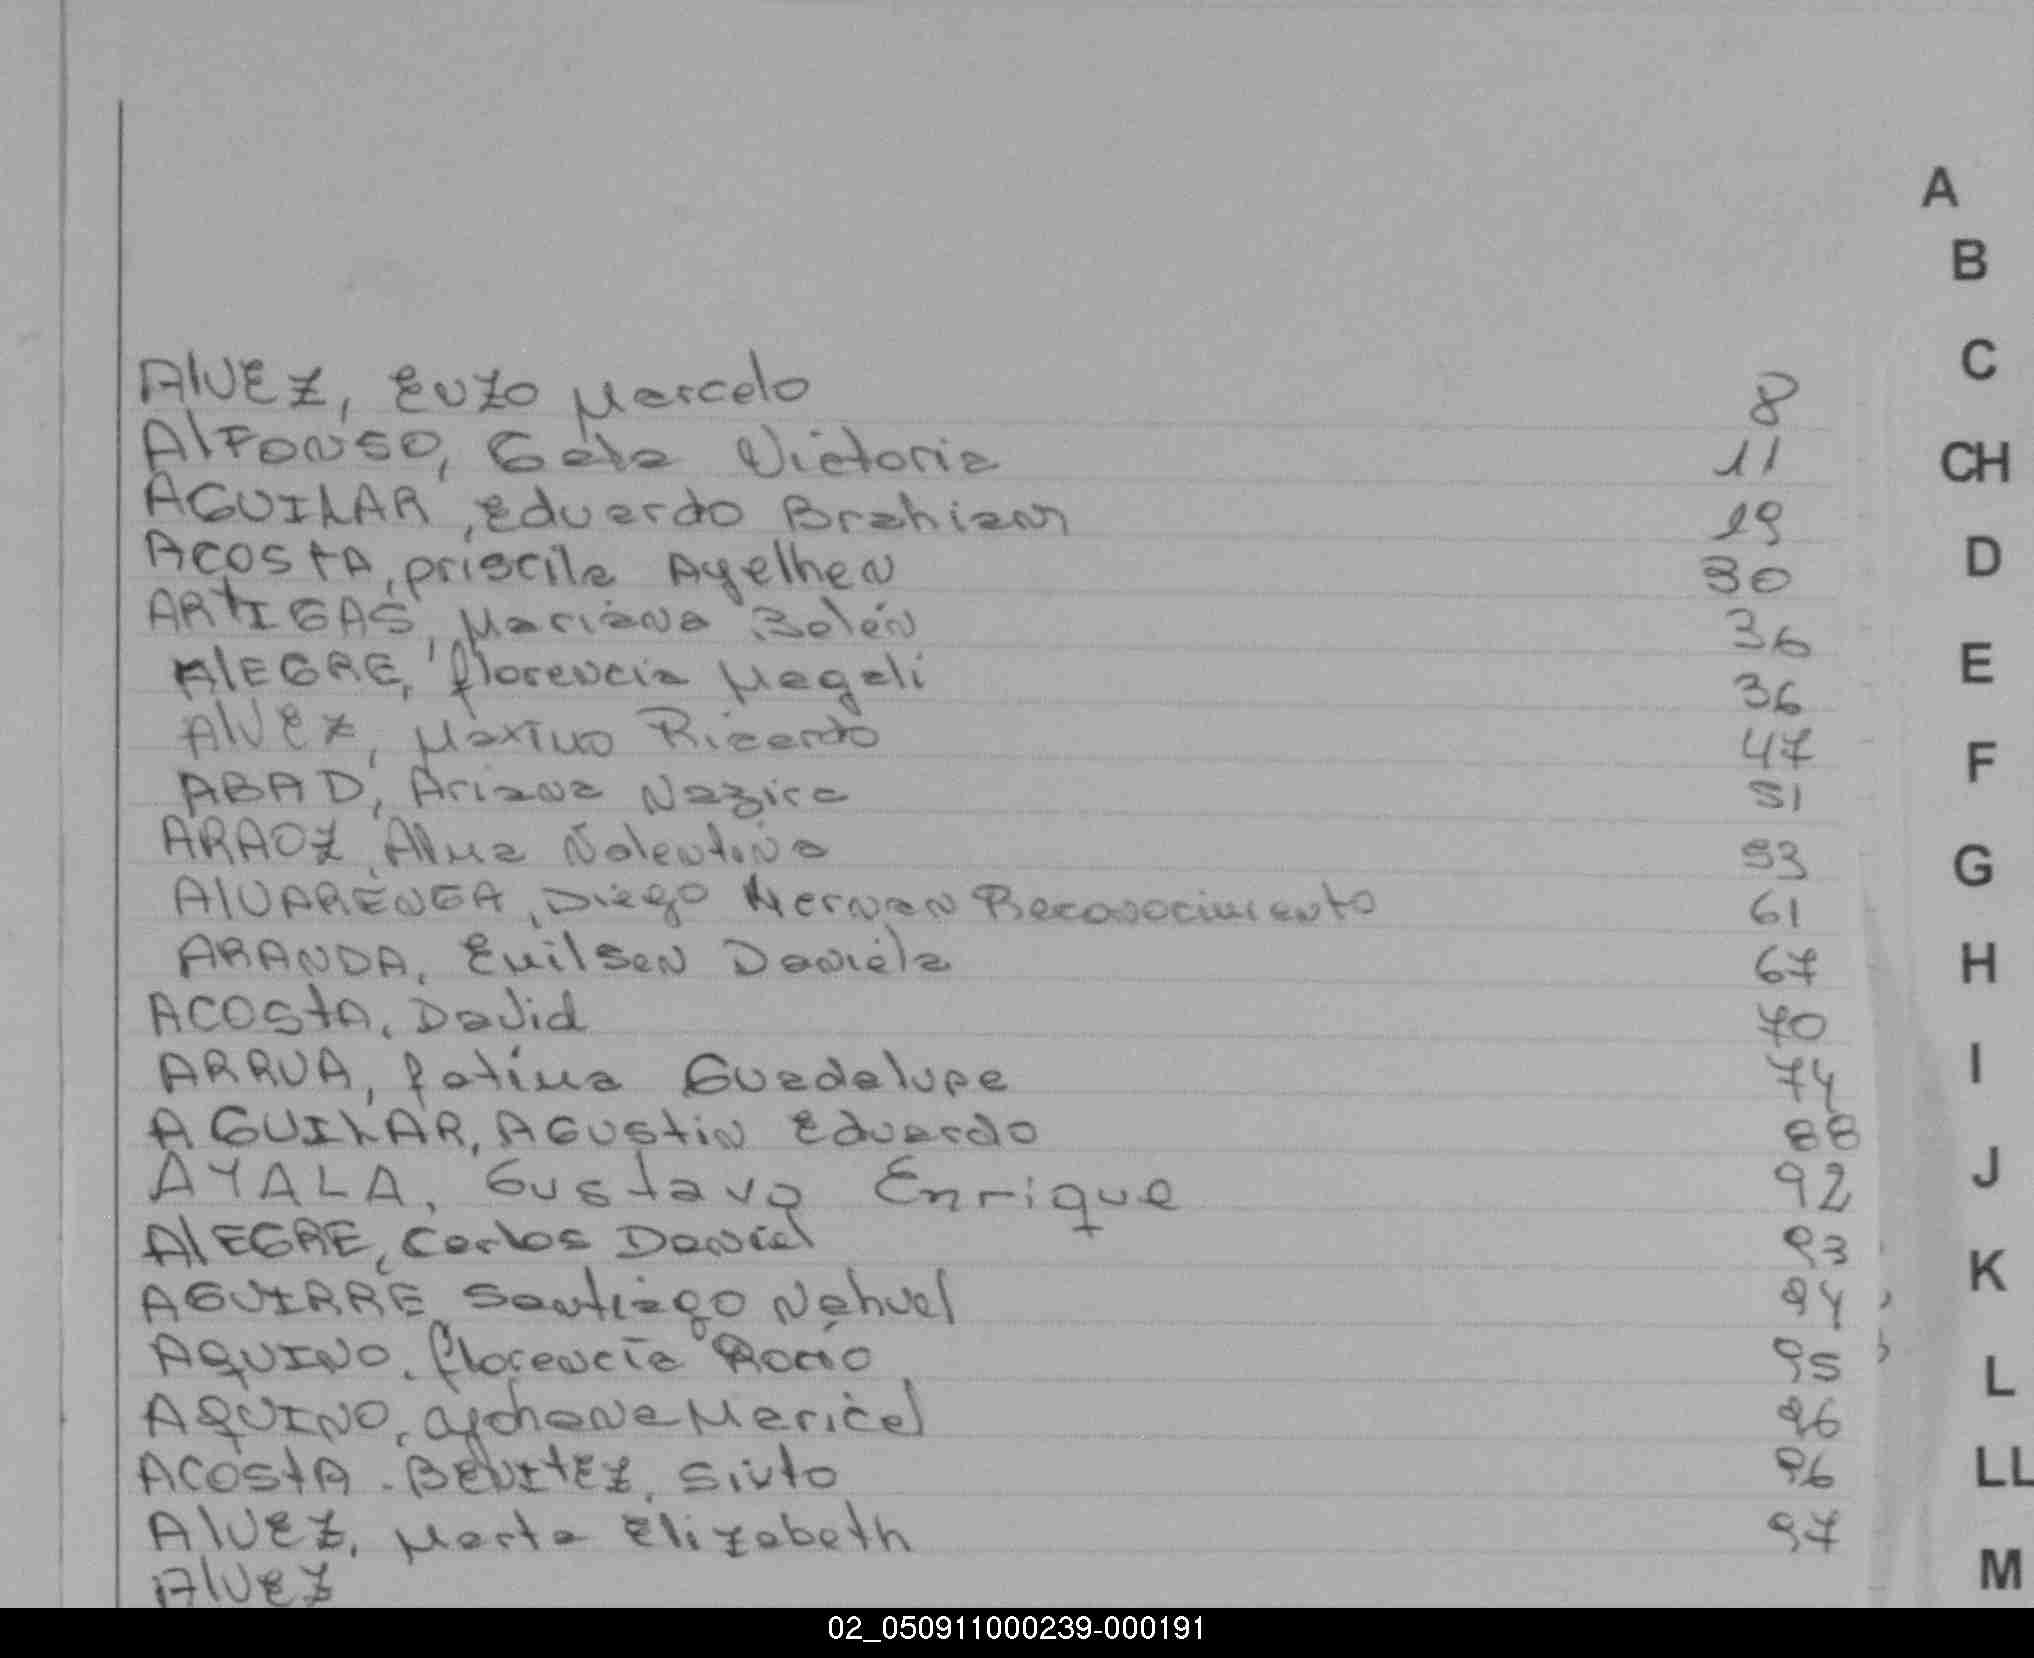 AlVEZ, Enzo Marcelo 8
AlFONSO, Gala Victoria 11
AGUILAR, Eduardo Brahiam 19
ACOSTA, priscila Ayelhen 30
ARTIGAS, Mariana Belén 36
AlEGRE, florencia Magali 36
AlVEZ, Maximo Ricardo 47
ABAD, Ariana Nazira 51
ARAOZ, Alma Valentina 53
AlVARENGA, Diego Hernan Reconocimiento 61
ARANDA, Emilsen Daniela 67
ACOSTA, David 70
ARRUA, fatima Guadalupe 74
AGUILAR, AGustin Eduardo 88
AYALA, Gustavo Enrique 92
AlEGRE, Carlos Daniel 93
AGUIRRE Santiago Nahuel 94
AQUINO, florencia Rocio 95
AQUINO, Maricel 96
ACOSTA - BENITEZ, 96
AlVEZ, Marta Elizabeth 97
AlVEZ
A
B
C
CH
D
E
F
G
H
I
J
K
L
LL
M
02_050911000239-000191